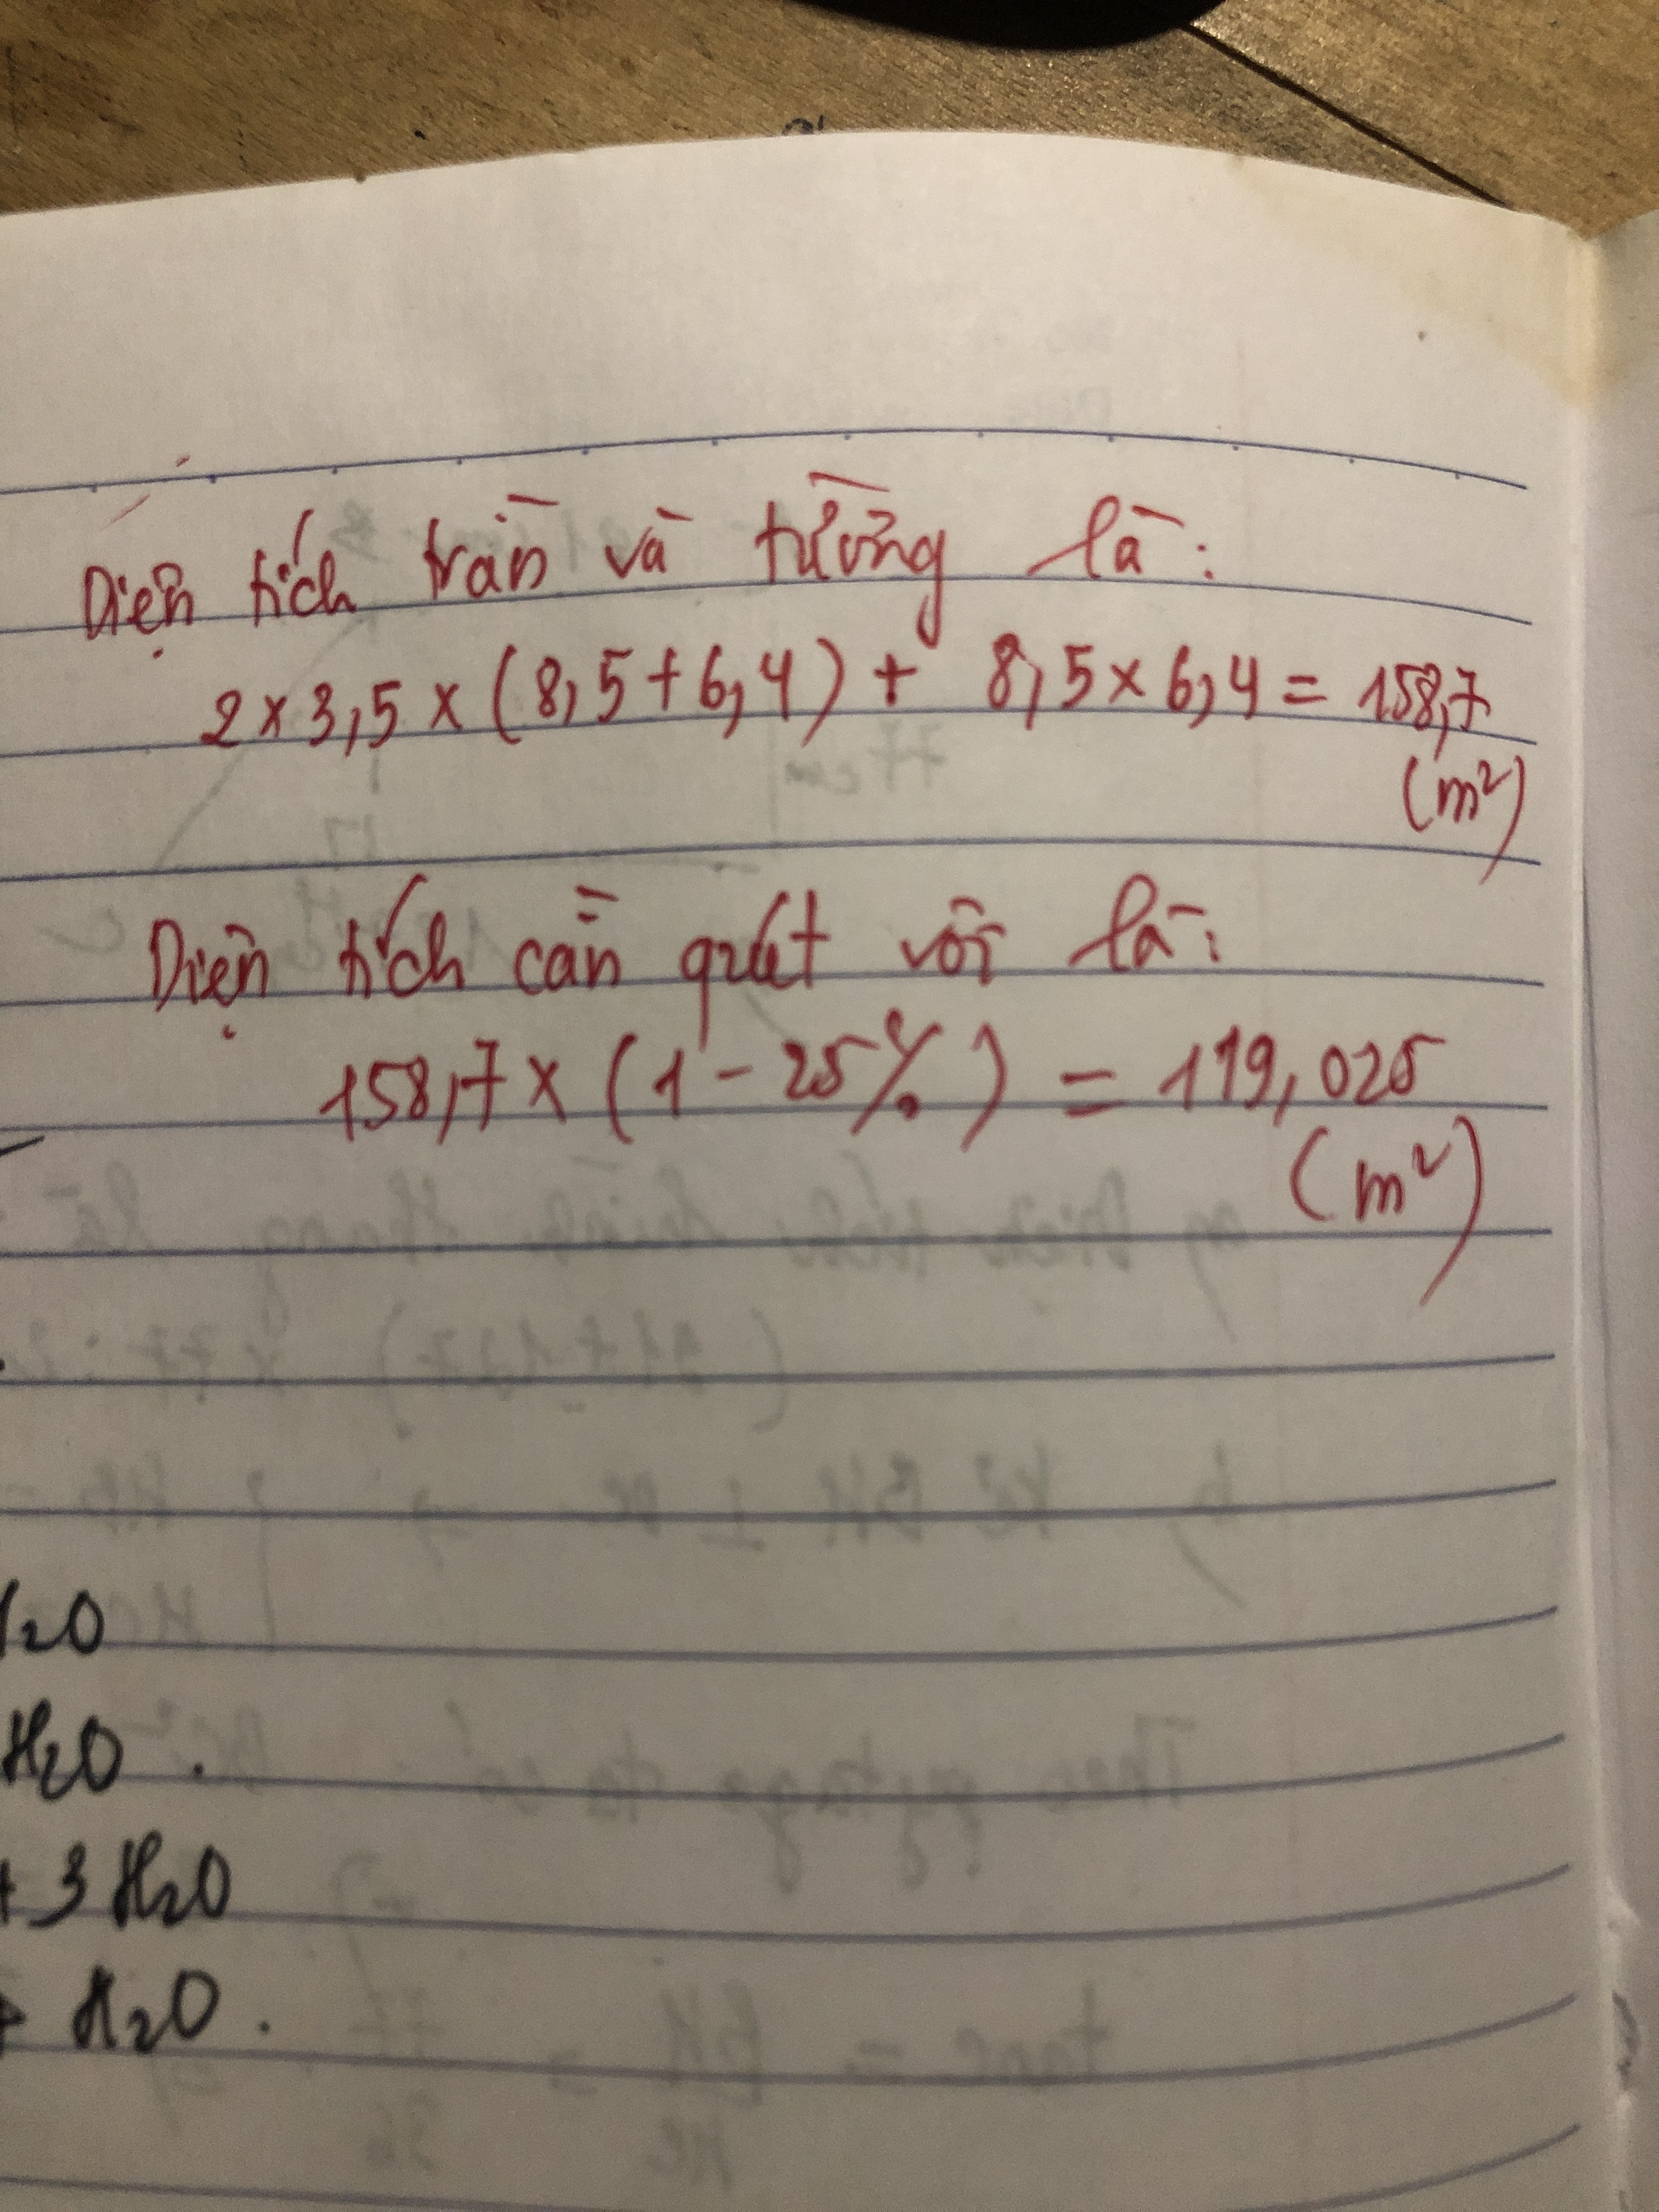 Diện tích trần và tường là:
2 x 3,5 x (8,5 + 6,4) + 8,5 x 6,4 = 158,7
(m²)
Diện tích cần quét vôi là:
158,7 x (1 - 25%) = 119,025
(m²)
H₂O
H₂O .
+ 3 H₂O
+ H₂O .